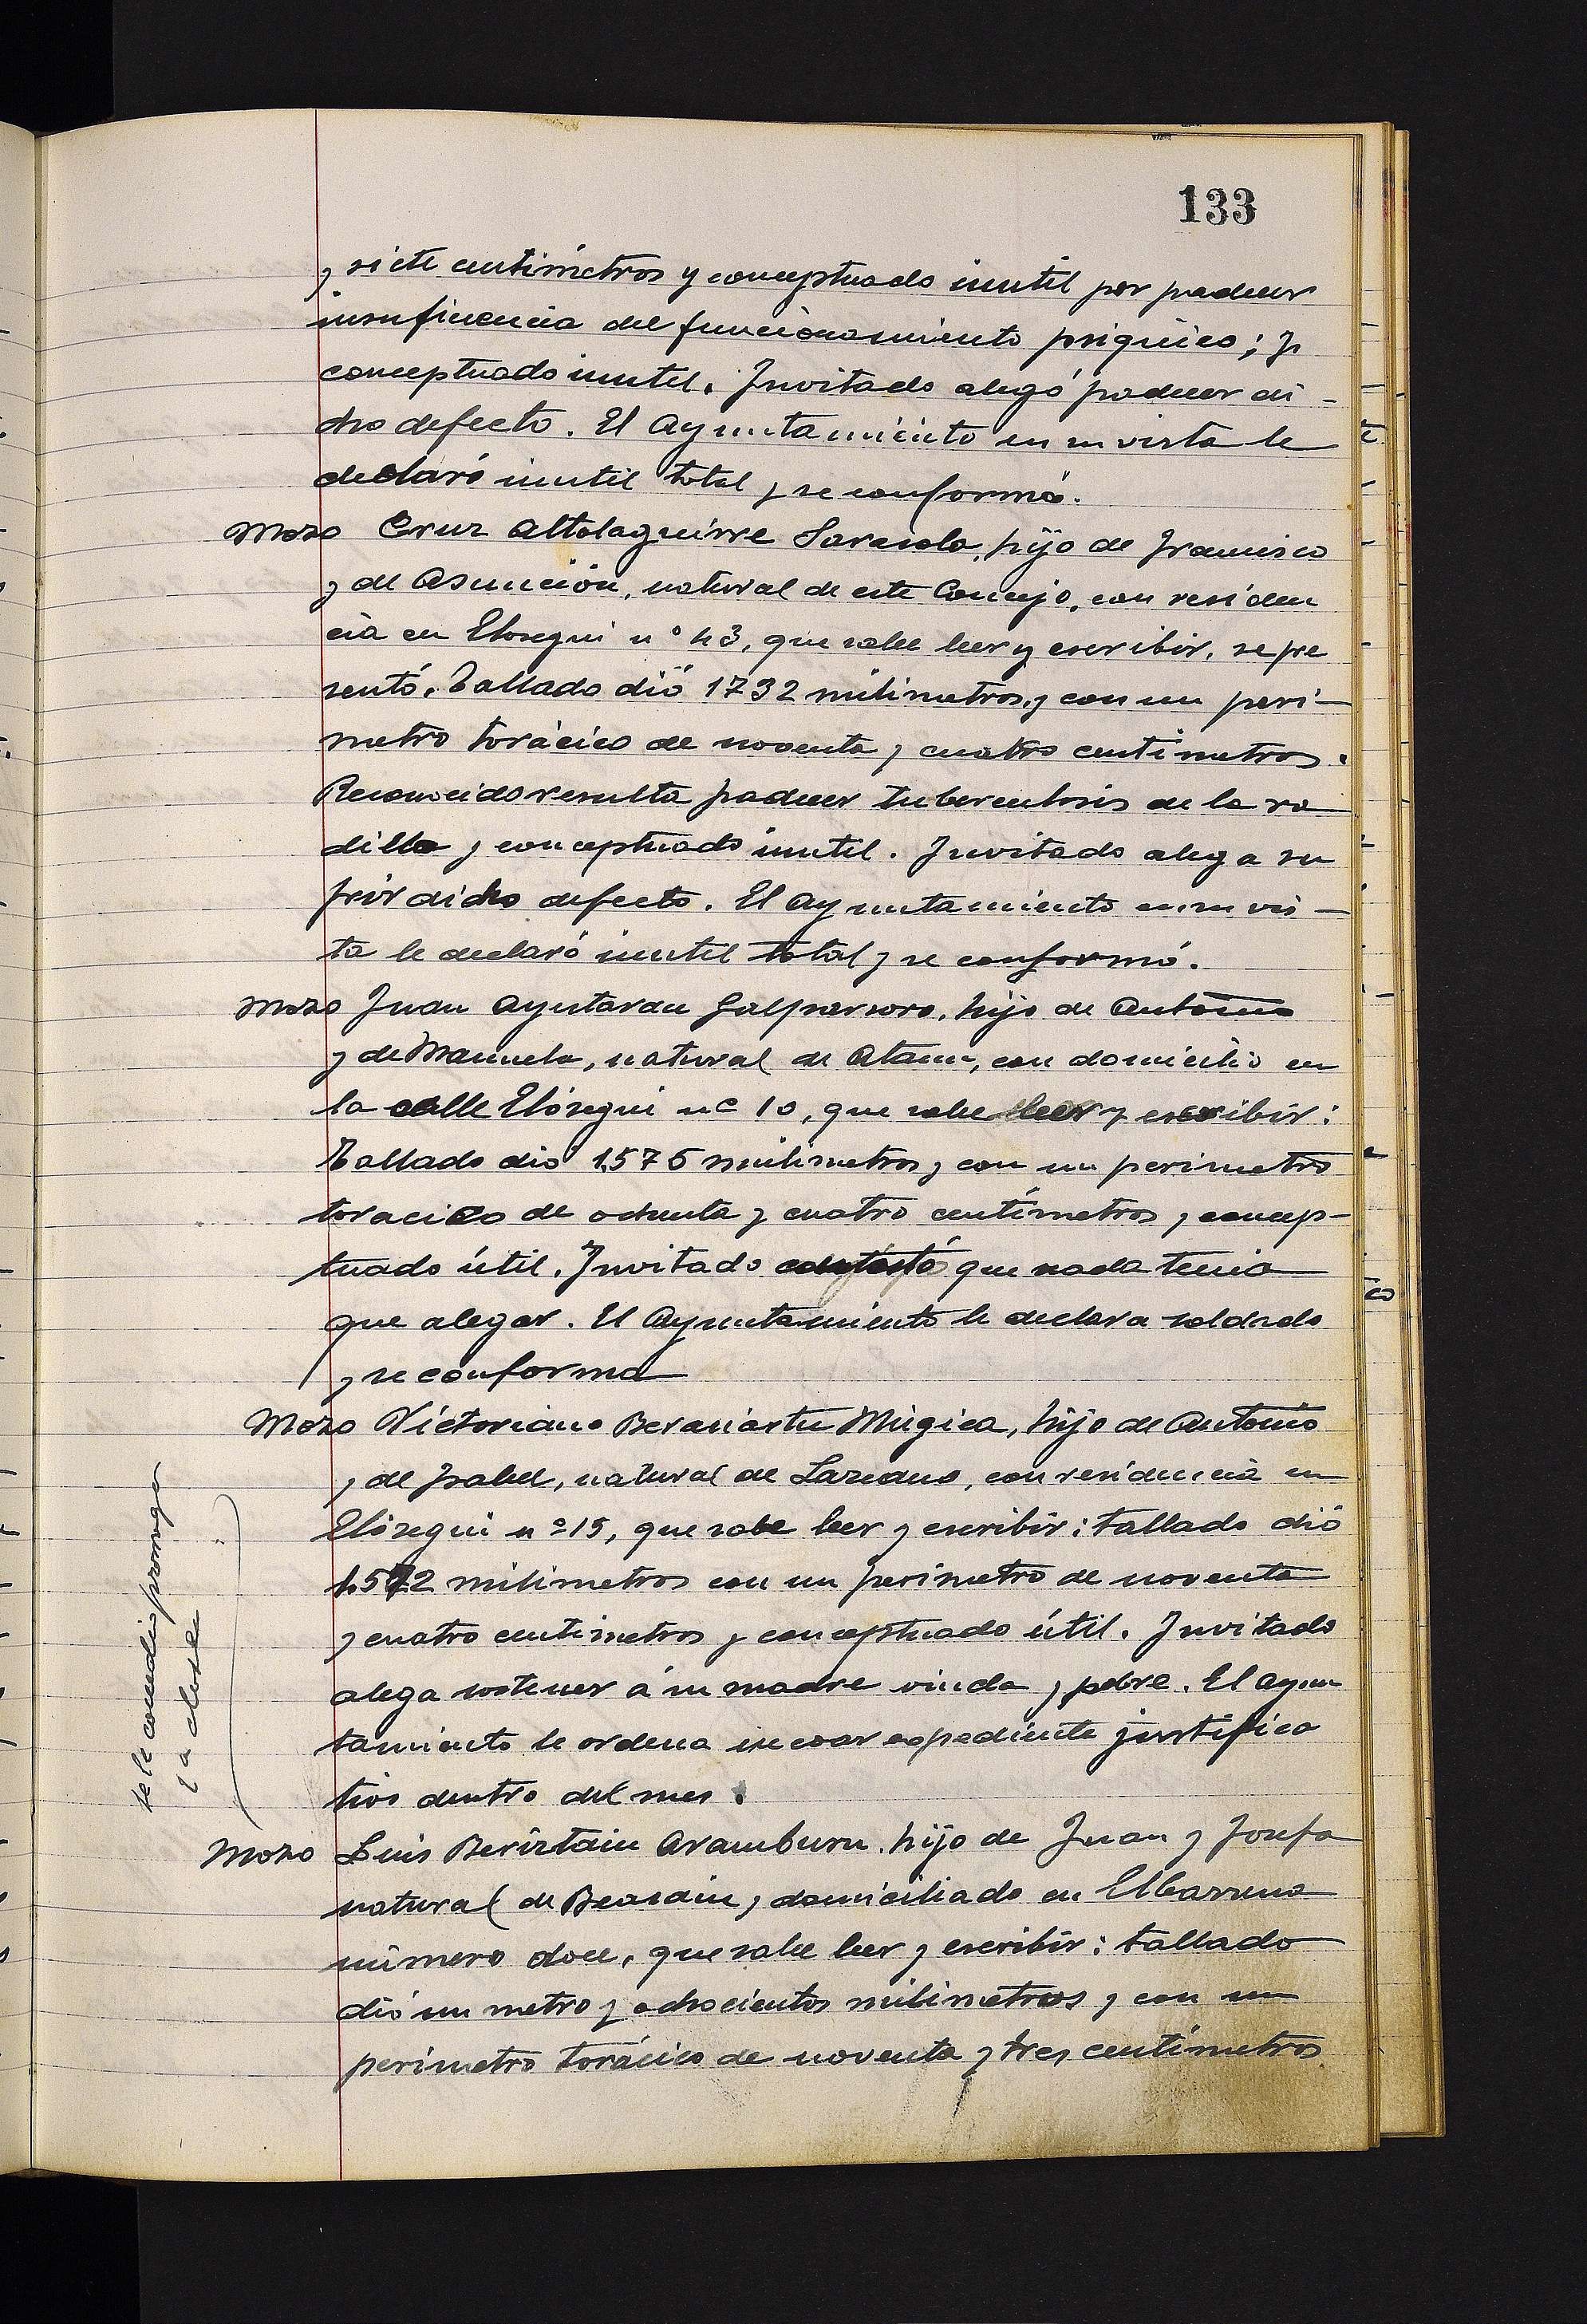 133
y siete centímetros y conceptuado inutil por padecer
insuficiencia del funcionamiento psiquico; y
conceptuado inutil. Invitado alegó padecer di-
cho defecto. El Ayuntamiento en su vista le
declaró inutil total y se conformó.
Mozo Cruz Altolaguirre Sarasola, hijo de Francisco
y de Asunción, natural de este Concejo, con residen
cia en Elosegui nº 43, que sabe leer y escribir, se pre
sentó. Tallado dió 1732 milimetros, y con un perí-
metro torácico de noventa y cuatro centímetros.
Reconocido resulta padecer tuberculosis de la ro
dilla y conceptuado inutil. Invitado alega su
frir dicho defecto. El Ayuntamiento en su vis-
ta le declaró inutil total y se conformó.
Mozo Juan Ayestaran Galparsoro, hijo de Antonio
y de Manuela, natural de Ataun, con domicilio en
la calle Elósegui nº 10, que sabe leer y escribir:
Tallado dió 1,575 milimetros y con un perimetro
toracico de ochenta y cuatro centímetros y concep-
tuado útil. Invitado contestó que nada tenia
que alegar. El Ayuntamiento le declara soldado
y se conforma
Mozo Victoriano Berasiartu Múgica, hijo de Antonio
y de Isabel, natural de Lazcano, con residencia en
Elósegui nº 15, que sabe leer y escribir: tallado dió
1.572 milimetros con un perimetro de noventa
y cuatro centimetros y conceptuado útil. Invitado
alega sostener á su madre viuda y pobre. El Ayun
tamiento le ordena incoar expediente justifica
tivo dentro del mes.
se le concedió prorroga
1ª clase
Mozo Luis Beriztain Aramburu, hijo de Juan y Josefa
natural de Beasain, domiciliado en Elbarrena
número doce, que sabe leer y escribir: tallado
dió un metro y ochocientos milimetros y con un
perímetro torácico de noventa y tres centímetros